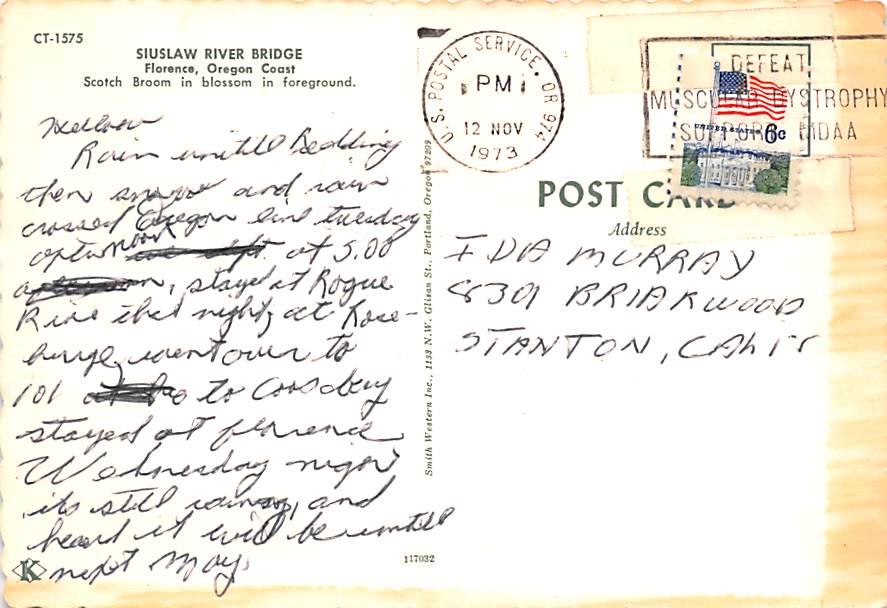 CT-1575
SIUSLAW RIVER BRIDGE
Florence, Oregon Coast
Scotch Broom in blossom in foreground.
Rain untill Redding
then snow and rain
crossed Oregon line tuesday
afternoon at 5.00
stayed at Rogue
River that night, at Rose-
burge went over to
101 to Coosbay
stayed at florence
Wednesday night
its still raining, and
heard it will be untill
next May.
K
117032
Smith Western Inc., 1133 N.W. Glisan St., Portland, Oregon 97209
U.S. POSTAL SERVICE. OR 974
PM
12 NOV
1973
DEFEAT
MUSCULAR DYSTROPHY
SUPPORT MDAA
UNITED STATES 6c
POST CARD
Address
IDA MURRAY
8301 BRIARWOOD
STANTON, CALIF